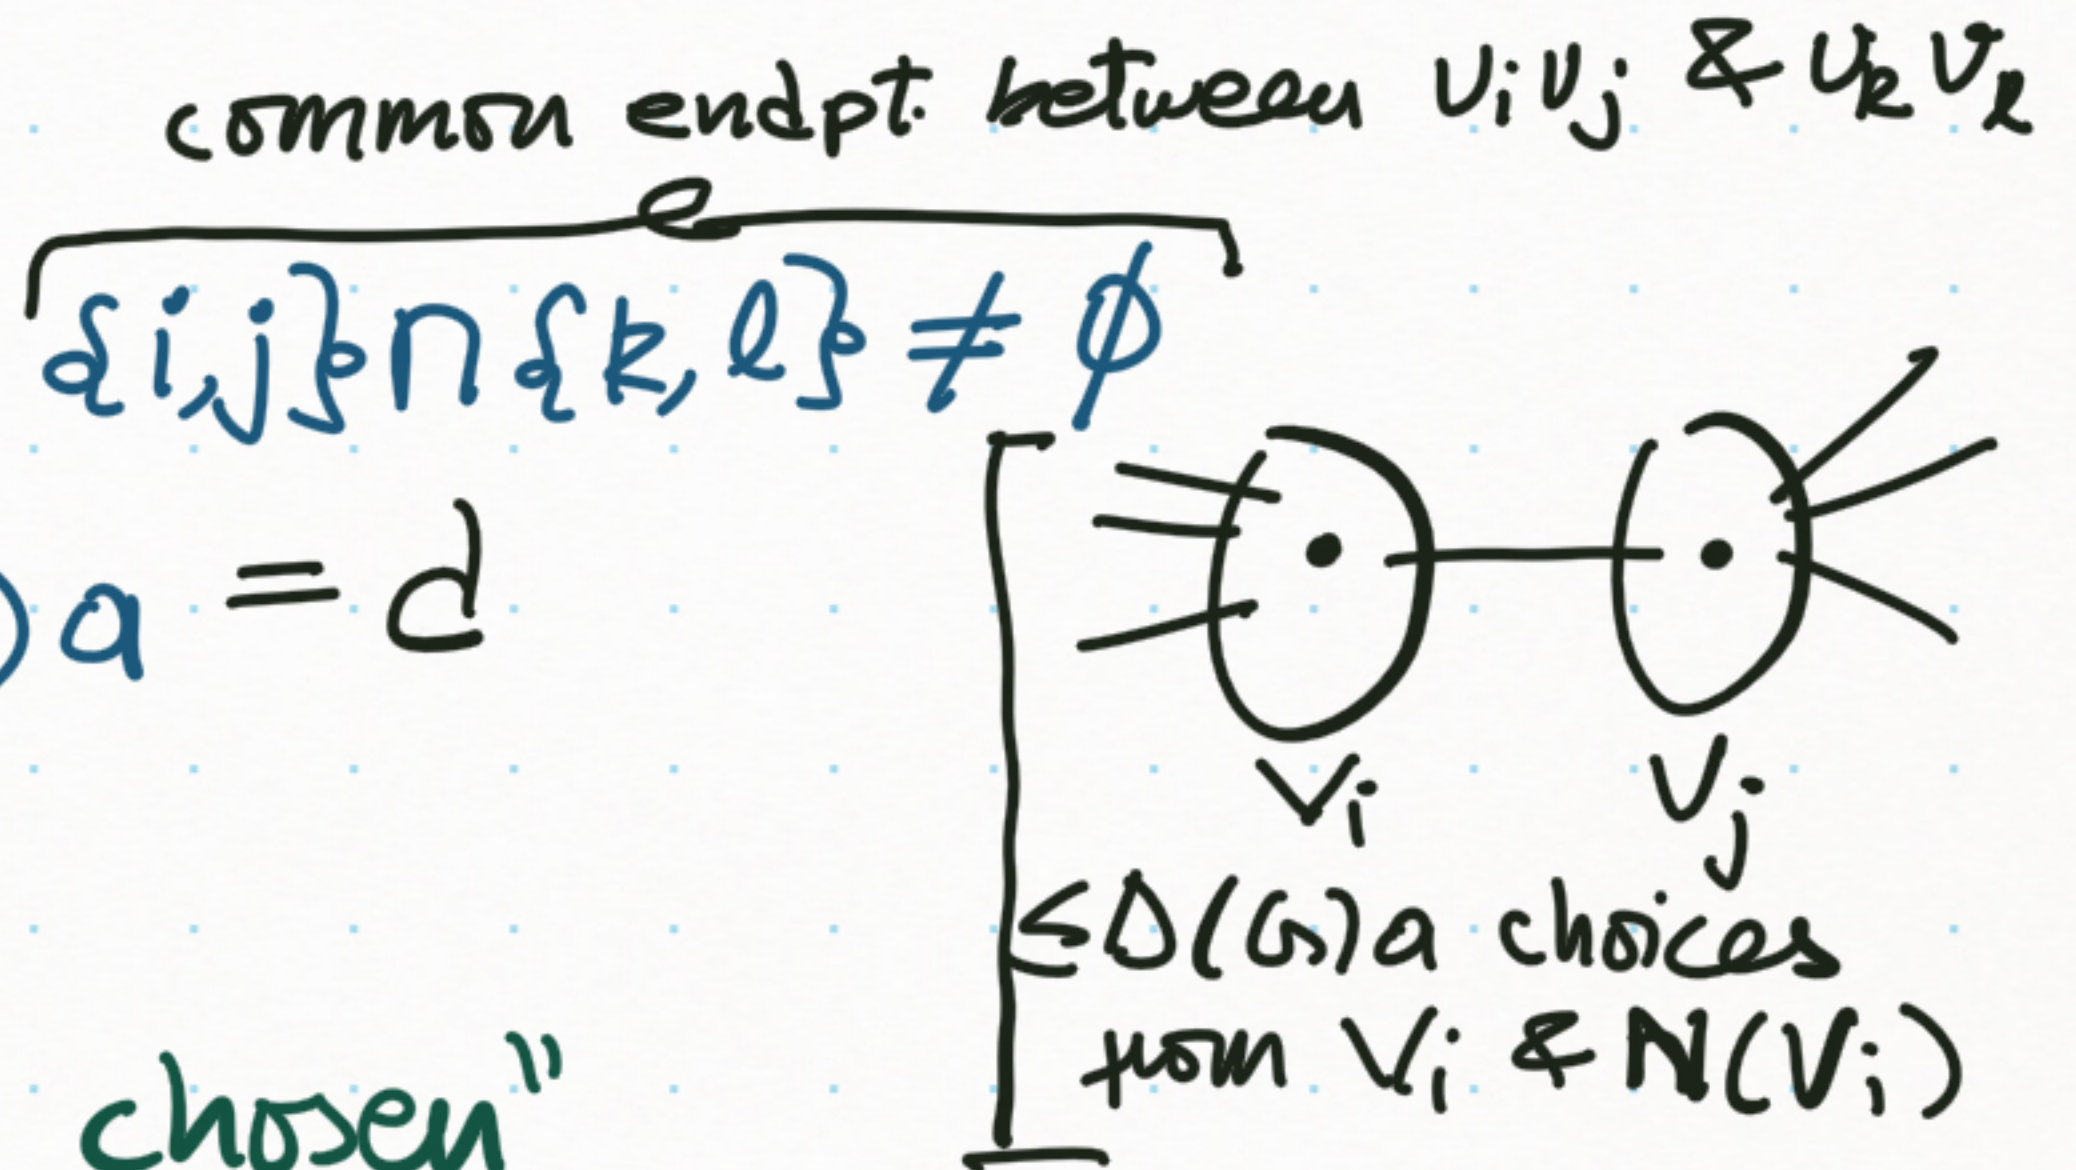 common endpt. between v_i v_j & v_k v_l
{i,j}∩{k,l} ≠ ϕ
)a = d
V_i V_j
≤Δ(G)a choices
from V_i & N(V_i)
chosen"